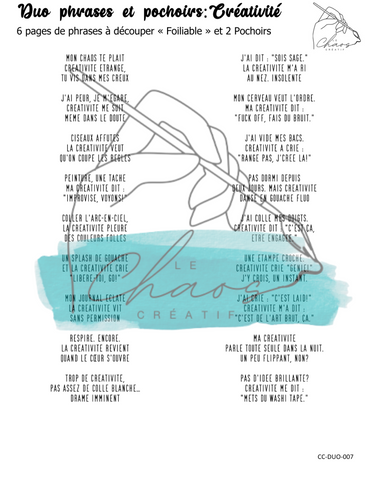 Duo phrases et pochoirs: Créativité
6 pages de phrases à découper « Foiliable » et 2 Pochoirs
Chaos
CRÉATIF
MON CHAOS TE PLAIT
CREATIVITE ETRANGE,
TU VIS DANS MES CREUX
J'AI PEUR, JE M'EGARE,
CREATIVITE ME SUIT
MEME DANS LE DOUTE
CISEAUX AFFUTES
LA CREATIVITE VEUT
QU'ON COUPE LES REGLES
PEINTURE, UNE TACHE
MA CREATIVITE DIT :
"IMPROVISE, VOYONS!"
COLLER L'ARC-EN-CIEL,
LA CREATIVITE PLEURE
DES COULEURS FOLLES
UN SPLASH DE GOUACHE
ET LA CREATIVITE CRIE
"LIBERE-TOI, GO!"
MON JOURNAL ECLATE
LA CREATIVITE VIT
SANS PERMISSION
RESPIRE. ENCORE.
LA CREATIVITE REVIENT
QUAND LE CŒUR S'OUVRE
TROP DE CREATIVITE,
PAS ASSEZ DE COLLE BLANCHE...
DRAME IMMINENT
J'AI DIT : "SOIS SAGE."
LA CREATIVITE M'A RI
AU NEZ. INSOLENTE
MON CERVEAU VEUT L'ORDRE.
MA CREATIVITE DIT :
"FUCK OFF, FAIS DU BRUIT."
J'AI VIDE MES BACS.
CREATIVITE A CRIE :
"RANGE PAS, J'CREE LA!"
PAS DORMI DEPUIS
DEUX JOURS, MAIS CREATIVITE
DANSE EN GOUACHE FLUO
J'AI COLLE MES DOIGTS.
CREATIVITE DIT : "C'EST ÇA,
ETRE ENGAGEE."
UNE ETAMPE CROCHE.
CREATIVITE CRIE "GENIE!"
J'Y CROIS, UN INSTANT.
J'AI CRIE : "C'EST LAID!"
CREATIVITE M'A DIT :
"C'EST DE L'ART BRUT, ÇA."
MA CREATIVITE
PARLE TOUTE SEULE DANS LA NUIT.
UN PEU FLIPPANT, NON?
PAS D'IDEE BRILLANTE?
CREATIVITE ME DIT :
"METS DU WASHI TAPE."
LE
Chaos
CRÉATIF
CC-DUO-007